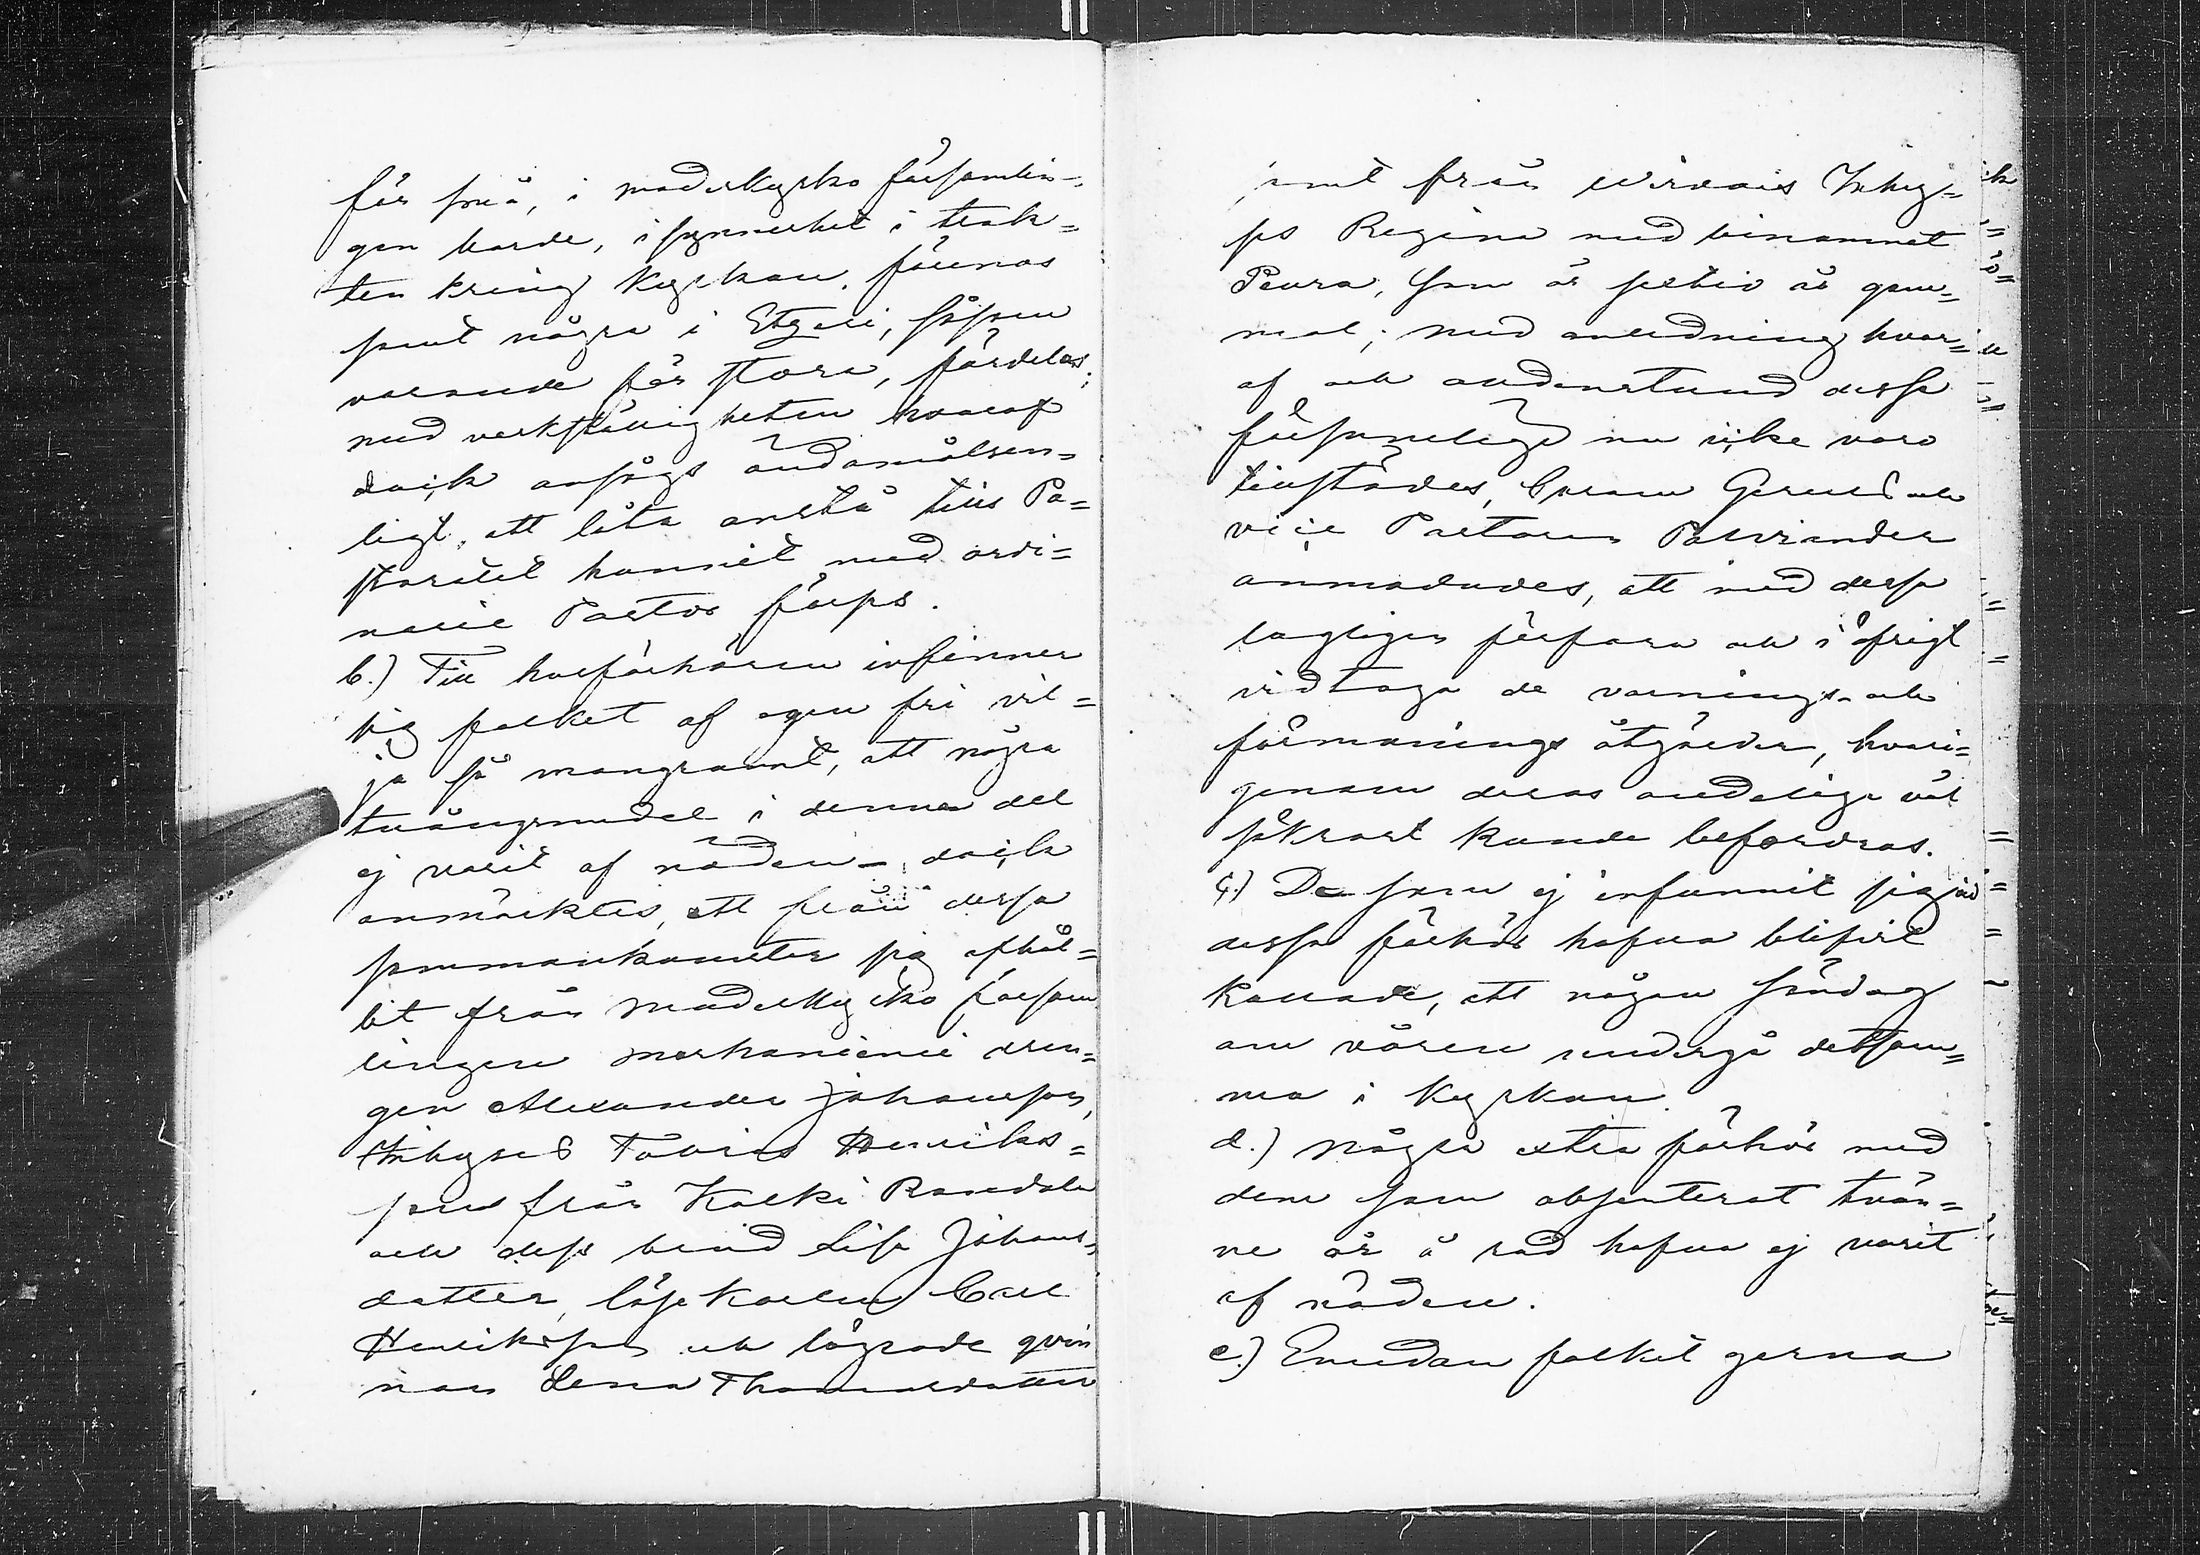 för små, i moderkyrko församlin-
gen borde, i synnerhet i trak=
ten kring Kyrkan, förenas
samt några i Etzeri, såsom
varande för stora, fördelas;
med verkställigheten hvaraf
dock ansågs ändamålsen=
ligt, att låta anstå tills Pa=
storatet hunnit med ordi=
narie Pastor förses.
b.) Till husförhören infinner
sig folket af egen fri vil=
ja så mangrannt, att några
tvångsmedel i denna del
ej varit af nöden – dock
anmärktes, att från dessa
sammankomster sig afhål=
lit från Moderkyrko församl
lingen mechanici dren=
gen Alexander Johansson,
Inhyses Tobias Henriks=
son från Kolki Ranedal
och dess hind Lisa Johans-
dotter, lösekarlen Carl
Henriksson och lägrade qvin
nan Lena Thomasdotter
samt från Wirdois Inhy=
ses Regina med binamnet
Peura, som är sextio år gam=
mal; med anledning hvar=
af och aldenstund dessa
försumelige nu icke voro
tillstädes, Coram Gerens och
vice Pastoren Palvrander
anmodades, att med dessa
lagligen förfara och i öfrigt
vidtaga de varnings- och
förmanings åtgärder, hvari=
genom deras andeliga väl
säkrast kunde befordras.
c.) De som ej infunnit sig vid
dessa förhör hafva blifvit
kallade, att någon söndag
om våren undergå detsam=
ma i Kyrkan.
d.) Några extra förhör med
dem som absenterat tvän=
ne år å rad hafva ej varit
af nöden.
e.) Emedan folket gerna